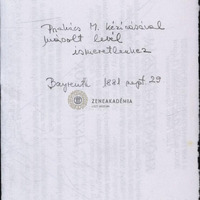 Prahács M. kézírásával
másolt levél
ismeretlenhez
Bayreuth 1881 szept. 29
ZENEAKADÉMIA